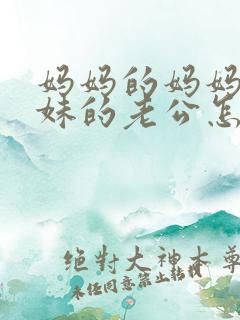 妈妈的妈妈
妹的老公怎
绝对大神本尊
未经同意禁止转载